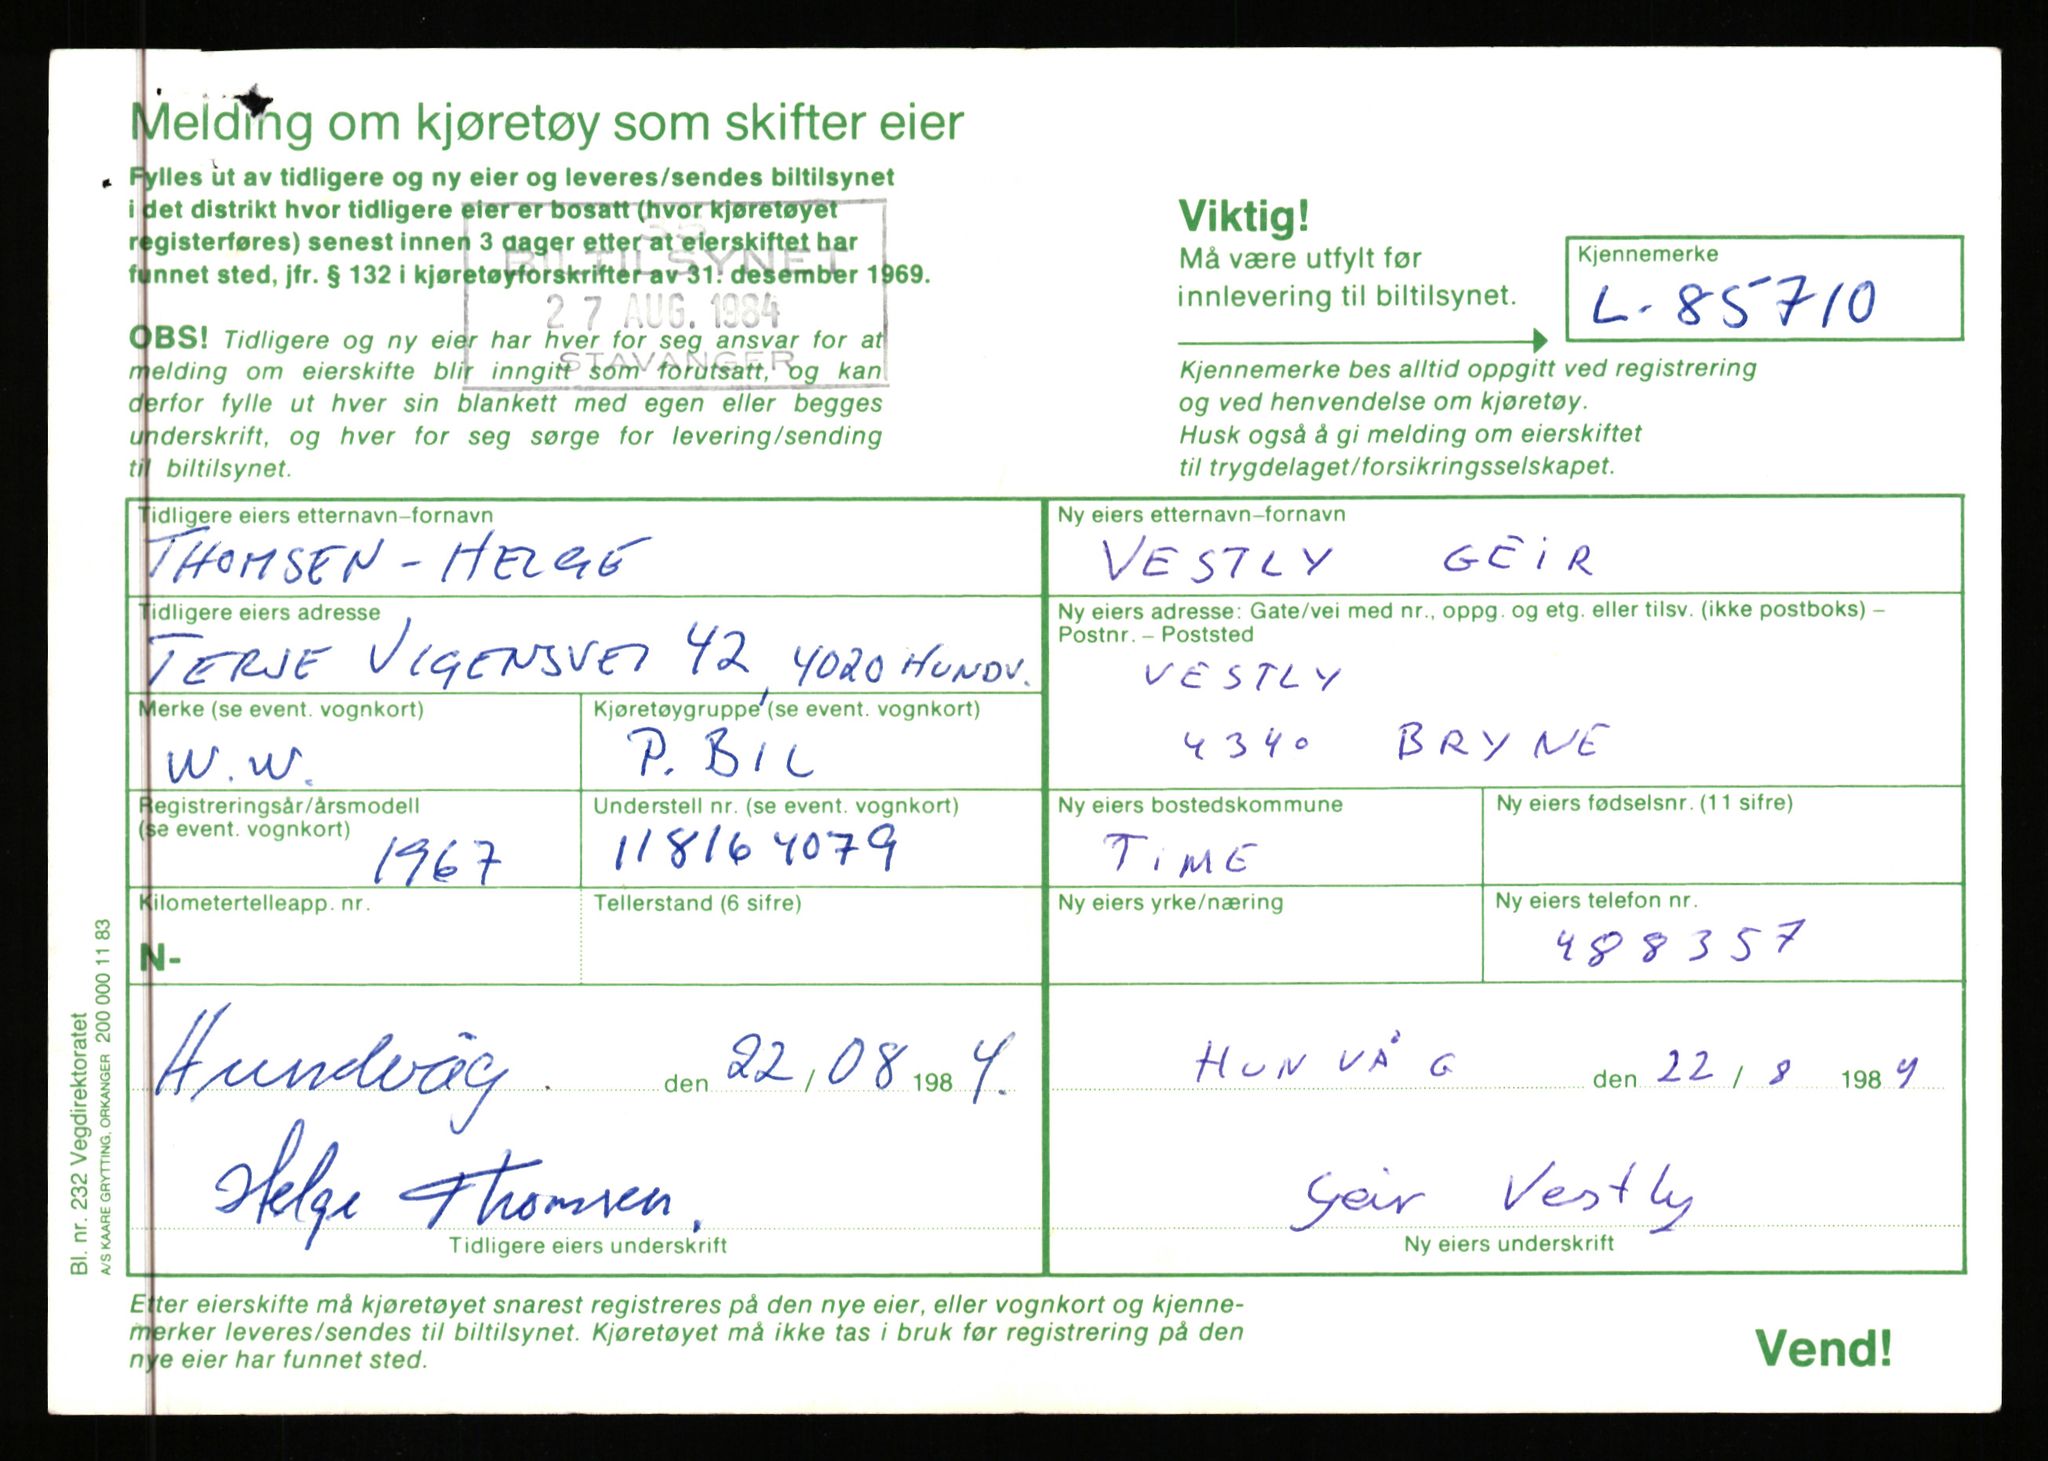 Melding om kjøretøy som skifter eier
Fylles ut av tidligere og ny eier og leveres/sendes biltilsynet
i det distrikt hvor tidligere eier er bosatt (hvor kjøretøyet
registerføres) senest innen 3 dager etter at eierskiftet har
funnet sted, jfr. § 132 i kjøretøyforskrifter av 31. desember 1969.
BILTILSYNET
27 AUG. 1984
STAVANGER
OBS! Tidligere og ny eier har hver for seg ansvar for at
melding om eierskifte blir inngitt som forutsatt, og kan
derfor fylle ut hver sin blankett med egen eller begges
underskrift, og hver for seg sørge for levering/sending
til biltilsynet.
Viktig!
Må være utfylt før
innlevering til biltilsynet.
Kjennemerke
L-85710
Kjennemerke bes alltid oppgitt ved registrering
og ved henvendelse om kjøretøy.
Husk også å gi melding om eierskiftet
til trygdelaget/forsikringsselskapet.
Tidligere eiers etternavn–fornavn
THOMSEN - HELGE
Tidligere eiers adresse
TERJE VIGENSVEI 42, 4020 HUNDV.
Merke (se event. vognkort)
W.W.
Kjøretøygruppe (se event. vognkort)
P. BIL
Registreringsår/årsmodell
(se event. vognkort)
1967
Understell nr. (se event. vognkort)
118164079
Kilometertelleapp. nr.
N-
Tellerstand (6 sifre)
Hundvåg den 22/08 1984.
Helge Thomsen.
Tidligere eiers underskrift
Ny eiers etternavn–fornavn
VESTLY GEIR
Ny eiers adresse: Gate/vei med nr., oppg. og etg. eller tilsv. (ikke postboks) –
Postnr. – Poststed
VESTLY
4340 BRYNE
Ny eiers bostedskommune
TIME
Ny eiers fødselsnr. (11 sifre)
Ny eiers yrke/næring
Ny eiers telefon nr.
488357
HUNVÅG den 22/8 1984
Geir Vestly
Ny eiers underskrift
Etter eierskifte må kjøretøyet snarest registreres på den nye eier, eller vognkort og kjenne-
merker leveres/sendes til biltilsynet. Kjøretøyet må ikke tas i bruk før registrering på den
nye eier har funnet sted.
Vend!
Bl. nr. 232 Vegdirektoratet
A/S KAARE GRYTTING, ORKANGER 200 000 11 83